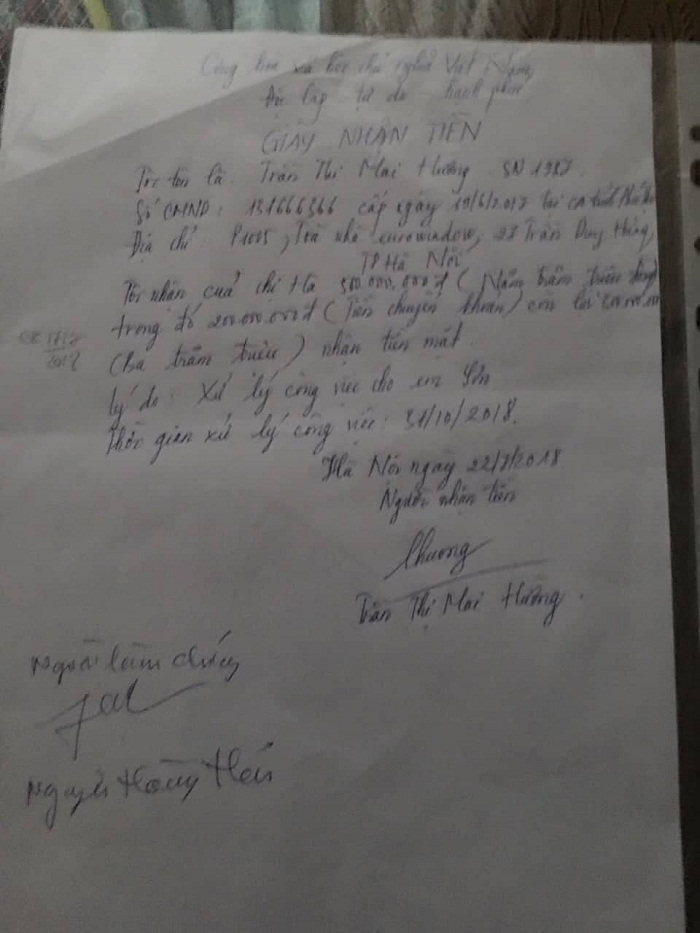 Cộng hòa xã hội chủ nghĩa Việt Nam
Độc lập tự do hạnh phúc
GIẤY NHẬN TIỀN
Tôi tên là: Trần Thị Mai Hương SN 1987
Số CMND: 131666366 cấp ngày 19/6/2017 tại CA tỉnh
Địa chỉ: P1005, Tòa nhà eurowindow, 27 Trần Duy Hưng,
TP Hà Nội
Tôi nhận của chị Hà 500.000.000đ (Năm trăm triệu đồng
trong đó 200.000.000đ (Tiền chuyển khoản) còn lại
(Ba trăm triệu) nhận tiền mặt.
2018
Lý do: Xử lý công việc cho em Sơn
Thời gian xử lý công việc: 31/10/2018.
Hà Nội ngày 22/7/2018
Người nhận tiền
Hương
Trần Thị Mai Hương.
Người làm chứng
Nguyễn Hồng